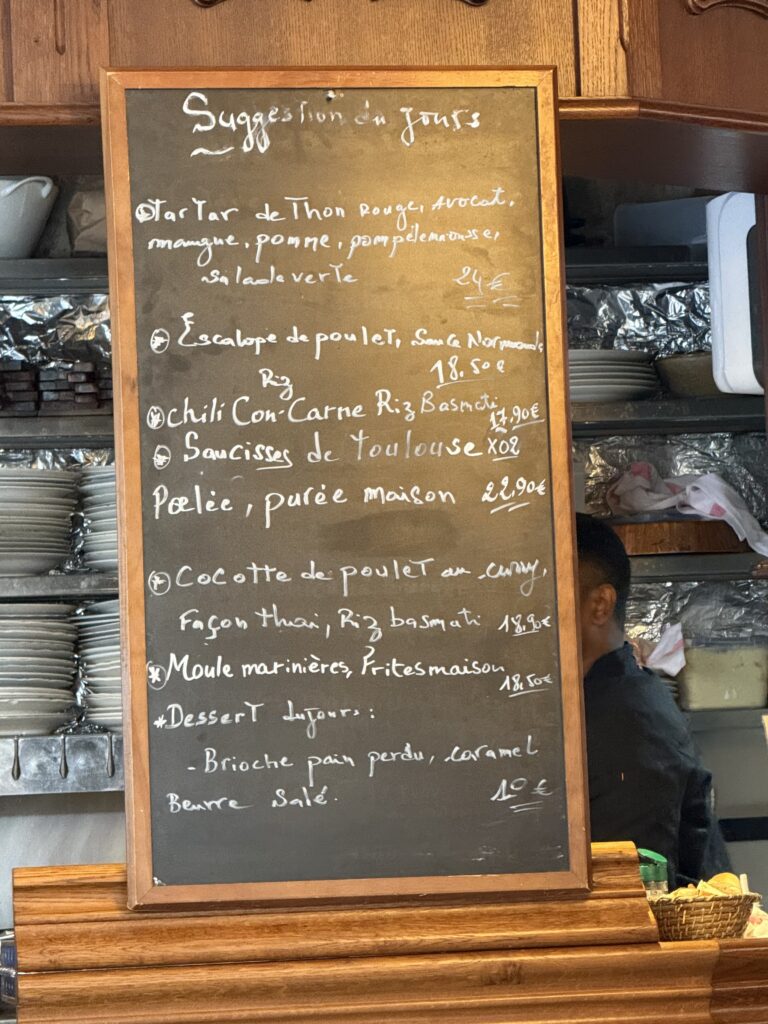 Suggestion du jours
Tartar de Thon Rouge, Avocat,
mangue, pomme, pompélemousse,
salade verte 24€
Escalope de poulet, Sauce Normande
18.50€
Riz
chili Con-Carne Riz Basmati 17,90€
Saucisses de Toulouse X02
Poelée, purée maison 22,90€
Cocotte de poulet au curry,
Façon thai, Riz basmati 18,90€
Moule marinières, Frites maison
18,50€
Dessert du jours:
- Brioche pain perdu, caramel
Beurre Salé. 10€